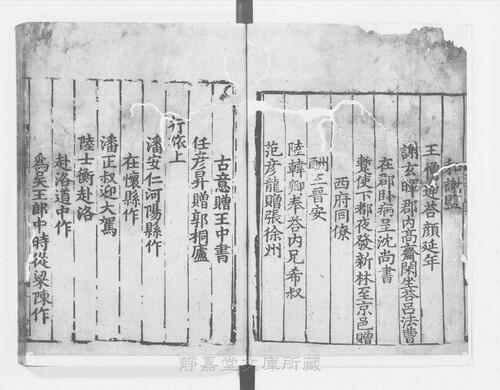 和謝監
王僧達荅顔延年
謝玄暉郡内髙齋閑坐荅吕法曹
在郡卧病呈沈尚書
蹔使下都夜發新林至京邑贈
西府同僚
酬王晉安
陸韓卿奉荅内兄希叔
范彦龍贈張徐州
古意贈王中書
任彦昇贈郭桐廬
行旅上
潘安仁河陽縣作
在懷縣作
潘正叔迎大駕
陸士衡赴洛
赴洛道中作
爲吴王郎中時從梁陳作
靜嘉堂文庫所藏